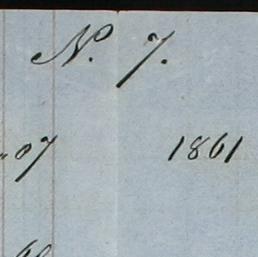 N. 7.
.07 1861